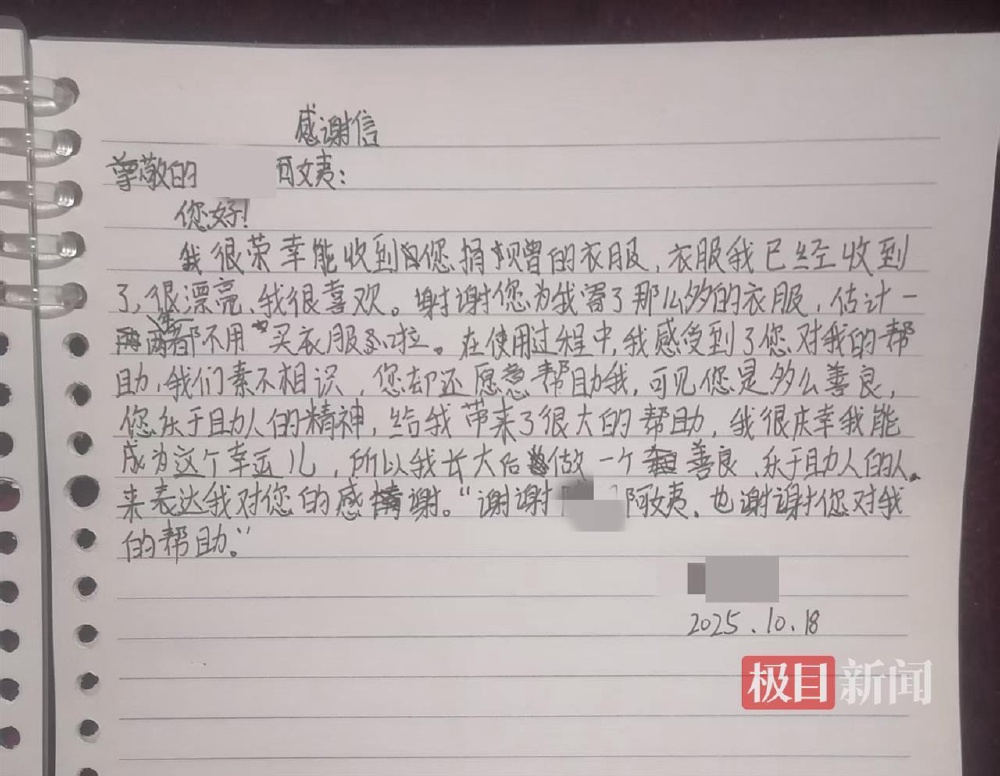 感谢信
尊敬的 阿姨：
您好！
我很荣幸能收到您捐赠的衣服，衣服我已经收到
了，很漂亮，我很喜欢。谢谢您为我寄了那么多的衣服，估计一
两年都不用买衣服啦。在使用过程中，我感受到了您对我的帮
助，我们素不相识，您却还愿意帮助我，可见您是多么善良，
您乐于助人的精神，给我带来了很大的帮助，我很庆幸我能
成为这个幸运儿，所以我长大后做一个善良、乐于助人的人。
来表达我对您的感谢。“谢谢 阿姨，也谢谢您对我
的帮助。”
2025.10.18
极目新闻